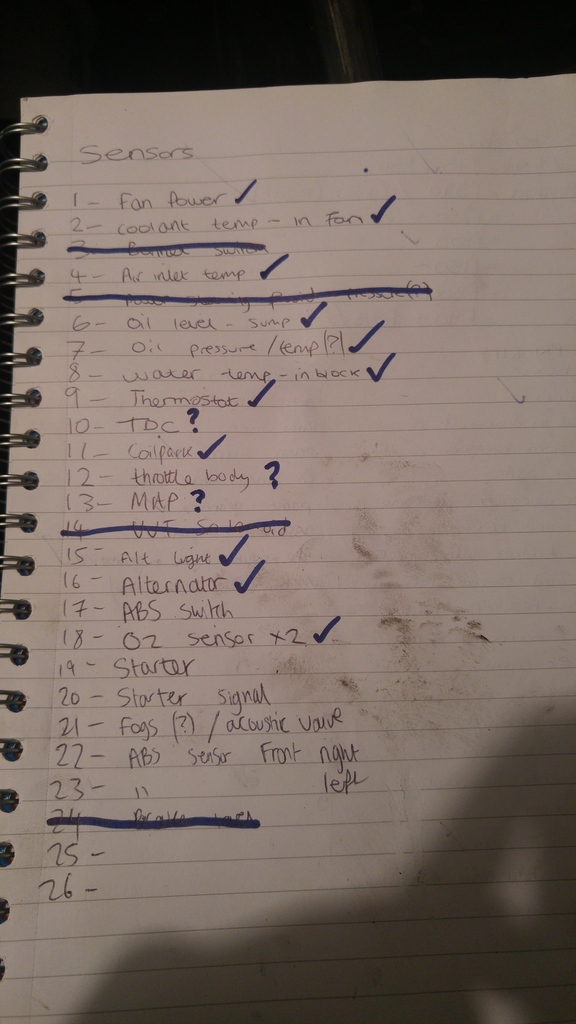 Sensors
1 - Fan Power ✓
2 - coolant temp - in Fan ✓
3 - Bonnet switch
4 - Air inlet temp ✓
5 - Power steering fluid pressure(?)
6 - Oil level - sump ✓
7 - Oil pressure/temp(?) ✓
8 - water temp - in block ✓
9 - Thermostat ✓
10 - TDC ?
11 - Coilpack ✓
12 - throttle body ?
13 - MAP ?
14 - VVT Solenoid
15 - Alt light ✓
16 - Alternator ✓
17 - ABS switch
18 - O2 sensor x2 ✓
19 - Starter
20 - Starter signal
21 - Fogs (?) / acoustic valve
22 - ABS sensor Front right
23 - " left
24 Brake
25 -
26 -